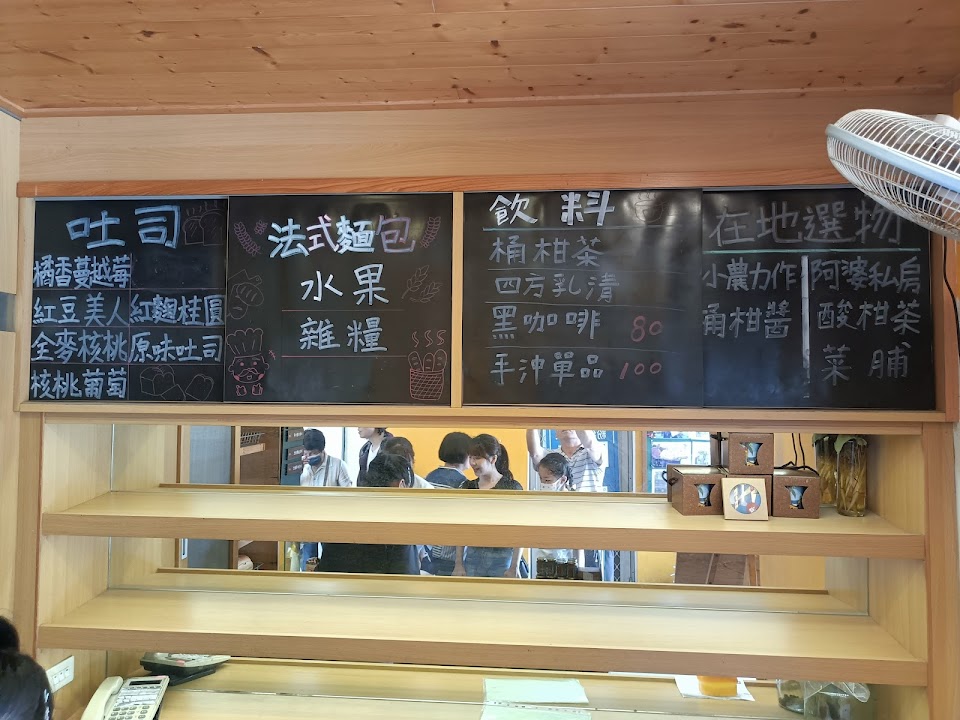 吐司
橘香蔓越莓
紅豆美人 紅麴桂圓
全麥核桃 原味吐司
核桃葡萄
法式麵包
水果
雜糧
飲料
桶柑茶
四方乳清
黑咖啡 80
手沖單品 100
在地選物
小農力作 阿婆私房
甪柑醬 酸柑茶
菜脯